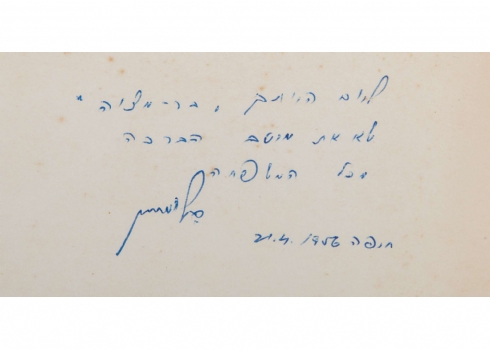 ליום היותך "בר-מצוה"
מיטב הברכה
מכל המשפחה
חיפה 21.4.1956